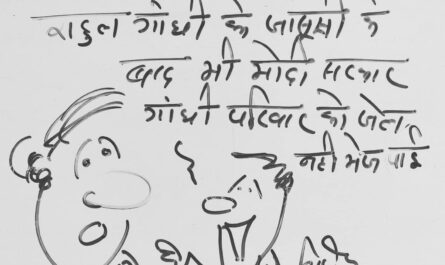 राहुल गांधी की जासूसी के
बाद भी मोदी सरकार
गांधी परिवार को जेल
नही भेज पाई